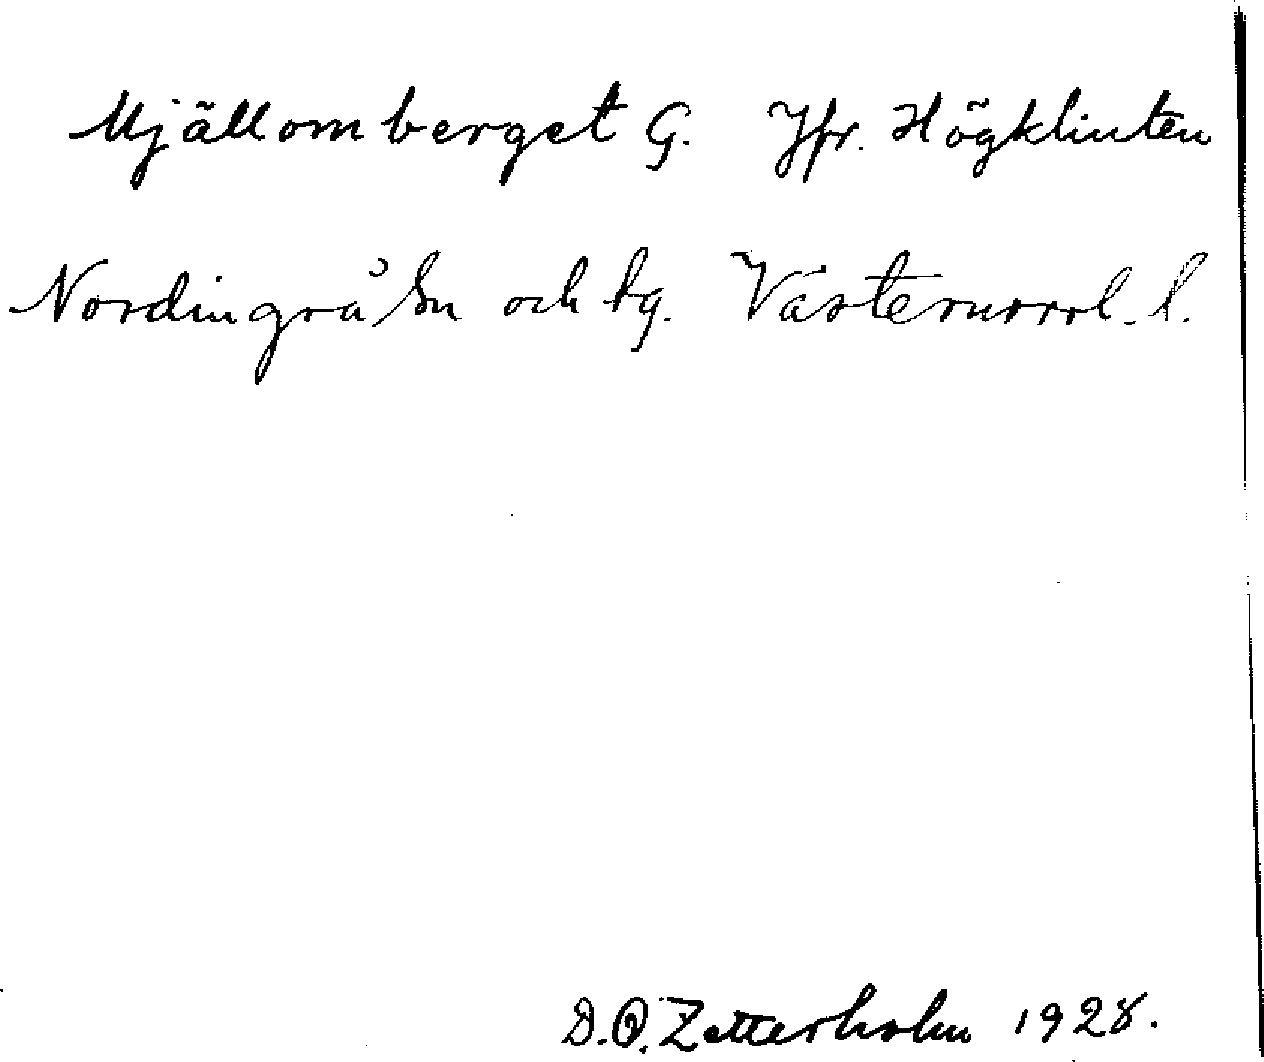 Mjällomberget G. Jfr. Högklinten
Nordingrå sn och tg. Västernorrl. l.
D.O. Zetterholm 1928.